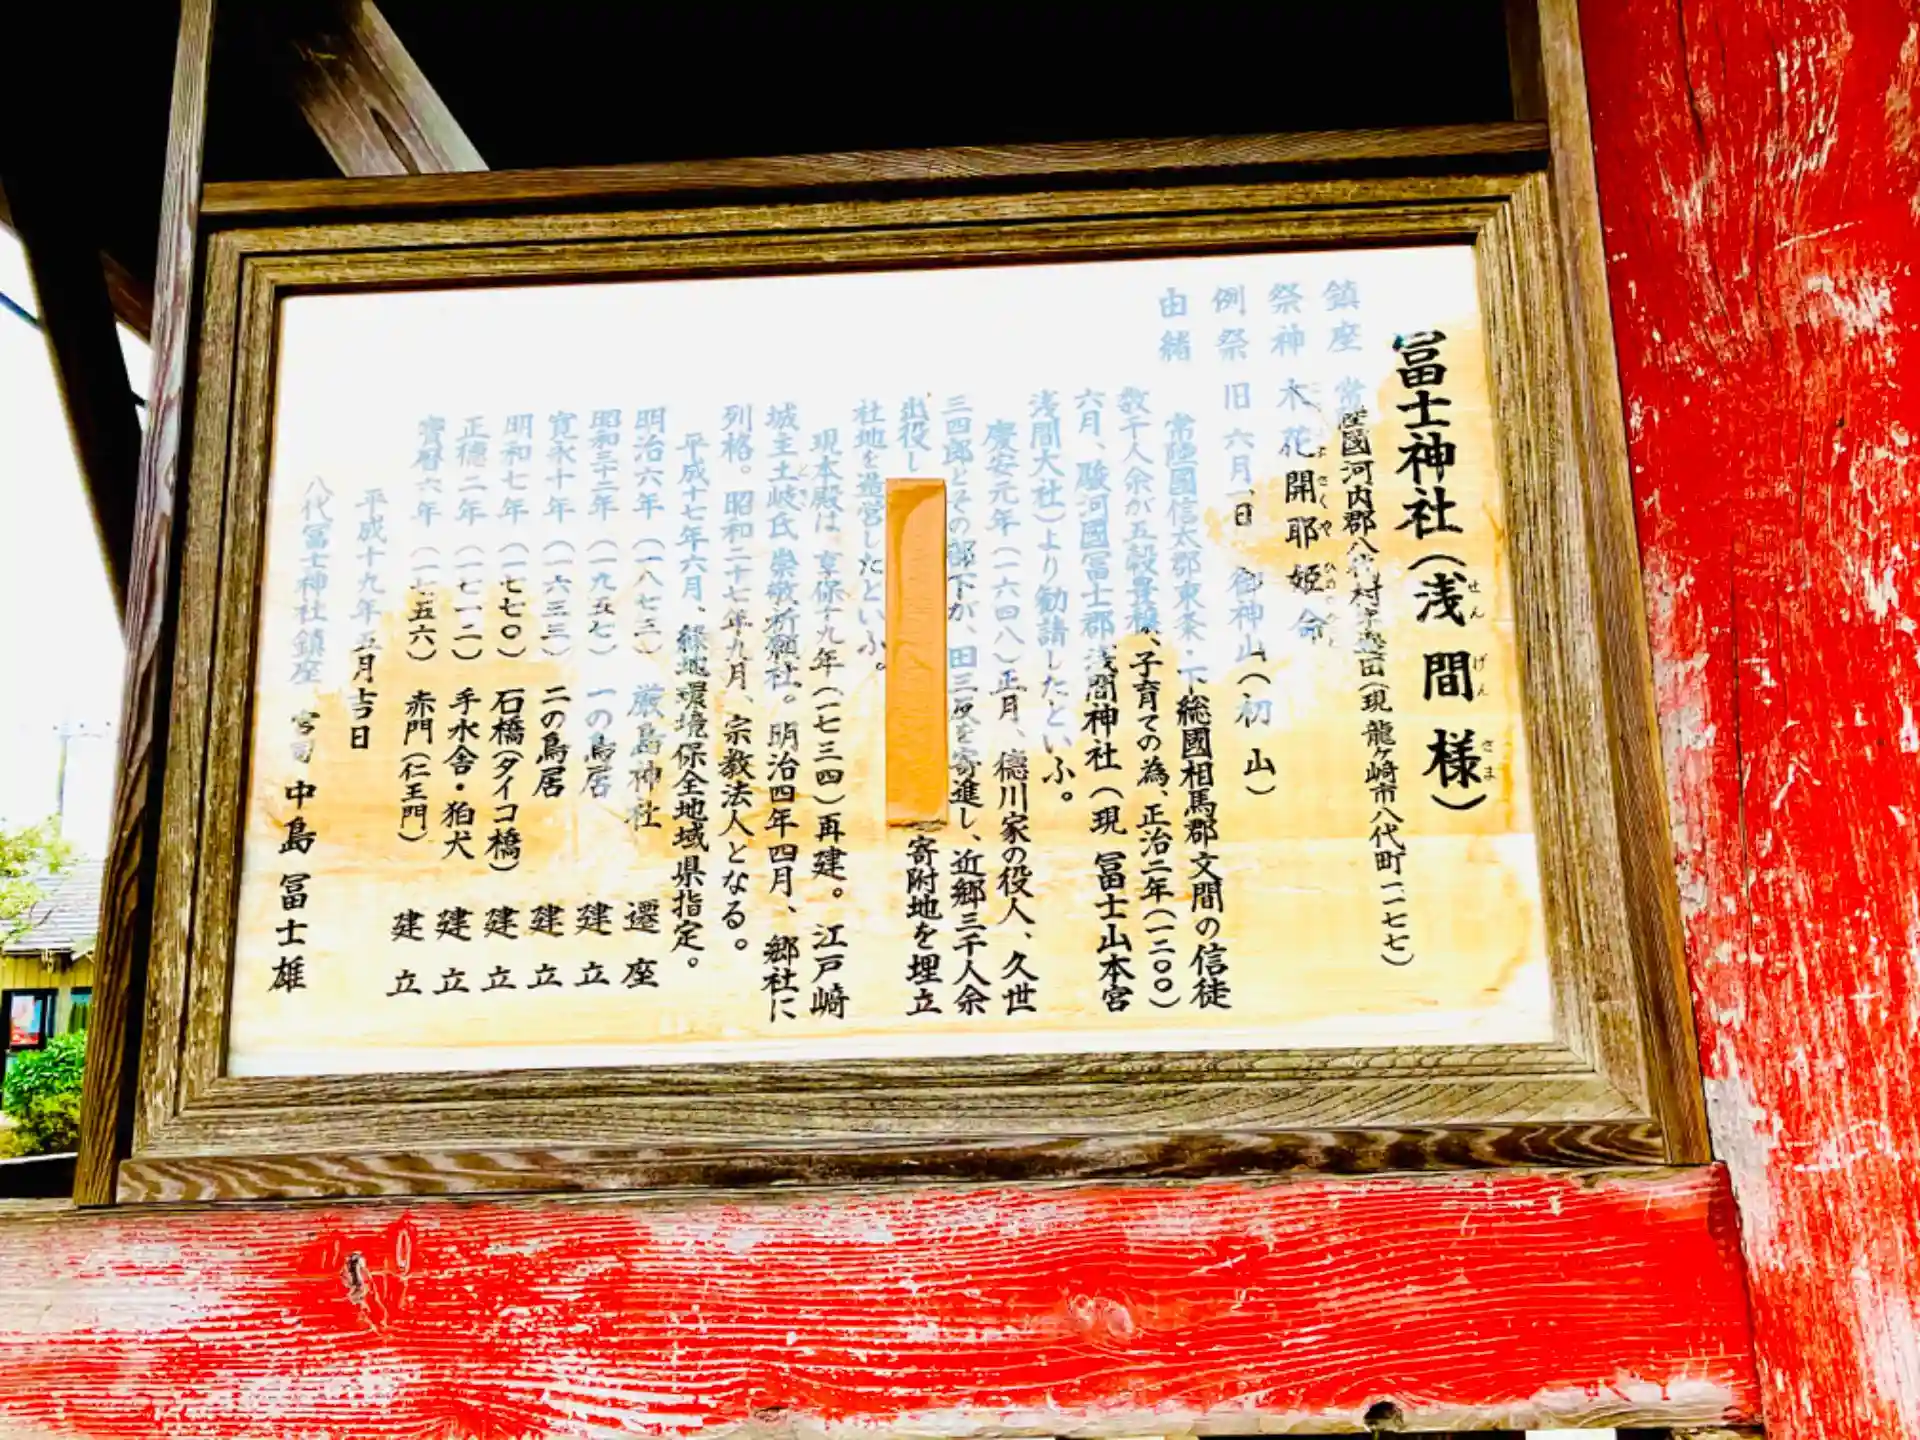 冨士神社(浅間様)
せんげんさま
鎮座 常陸國河内郡八代村字 田(現 龍ケ崎市八代町一一七七)
祭神 木花開耶姫命
例祭 旧六月一日 御神山(初山)
由緒
常陸國信太郡東条・下総國相馬郡文間の信徒
数千人余が五穀豊穣、子育ての為、正治二年(一二〇〇)
六月、駿河國冨士郡浅間神社(現 冨士山本宮
浅間大社)より勧請したといふ。
慶安元年(一六四八)正月、德川家の役人、久世
三四郎とその部下が、田三反を寄進し、近郷三千人余
出役し 寄附地を埋立
社地を造営したといふ。
現本殿は、享保十九年(一七三四)再建。江戸崎
城主土岐氏崇敬祈願社。明治四年四月、郷社に
列格。昭和二十七年九月、宗教法人となる。
平成十七年六月、緑地環境保全地域県指定。
明治六年(一八七三) 厳島神社 遷座
昭和三十二年(一九五七) 一の鳥居 建立
寛永十年(一六三三) 二の鳥居 建立
明和七年(一七七〇) 石橋(タイコ橋) 建立
正德二年(一七一二) 手水舎・狛犬 建立
寶暦六年(一七五六) 赤門(仁王門) 建立
平成十九年五月吉日
八代冨士神社鎮座 宮司 中島冨士雄